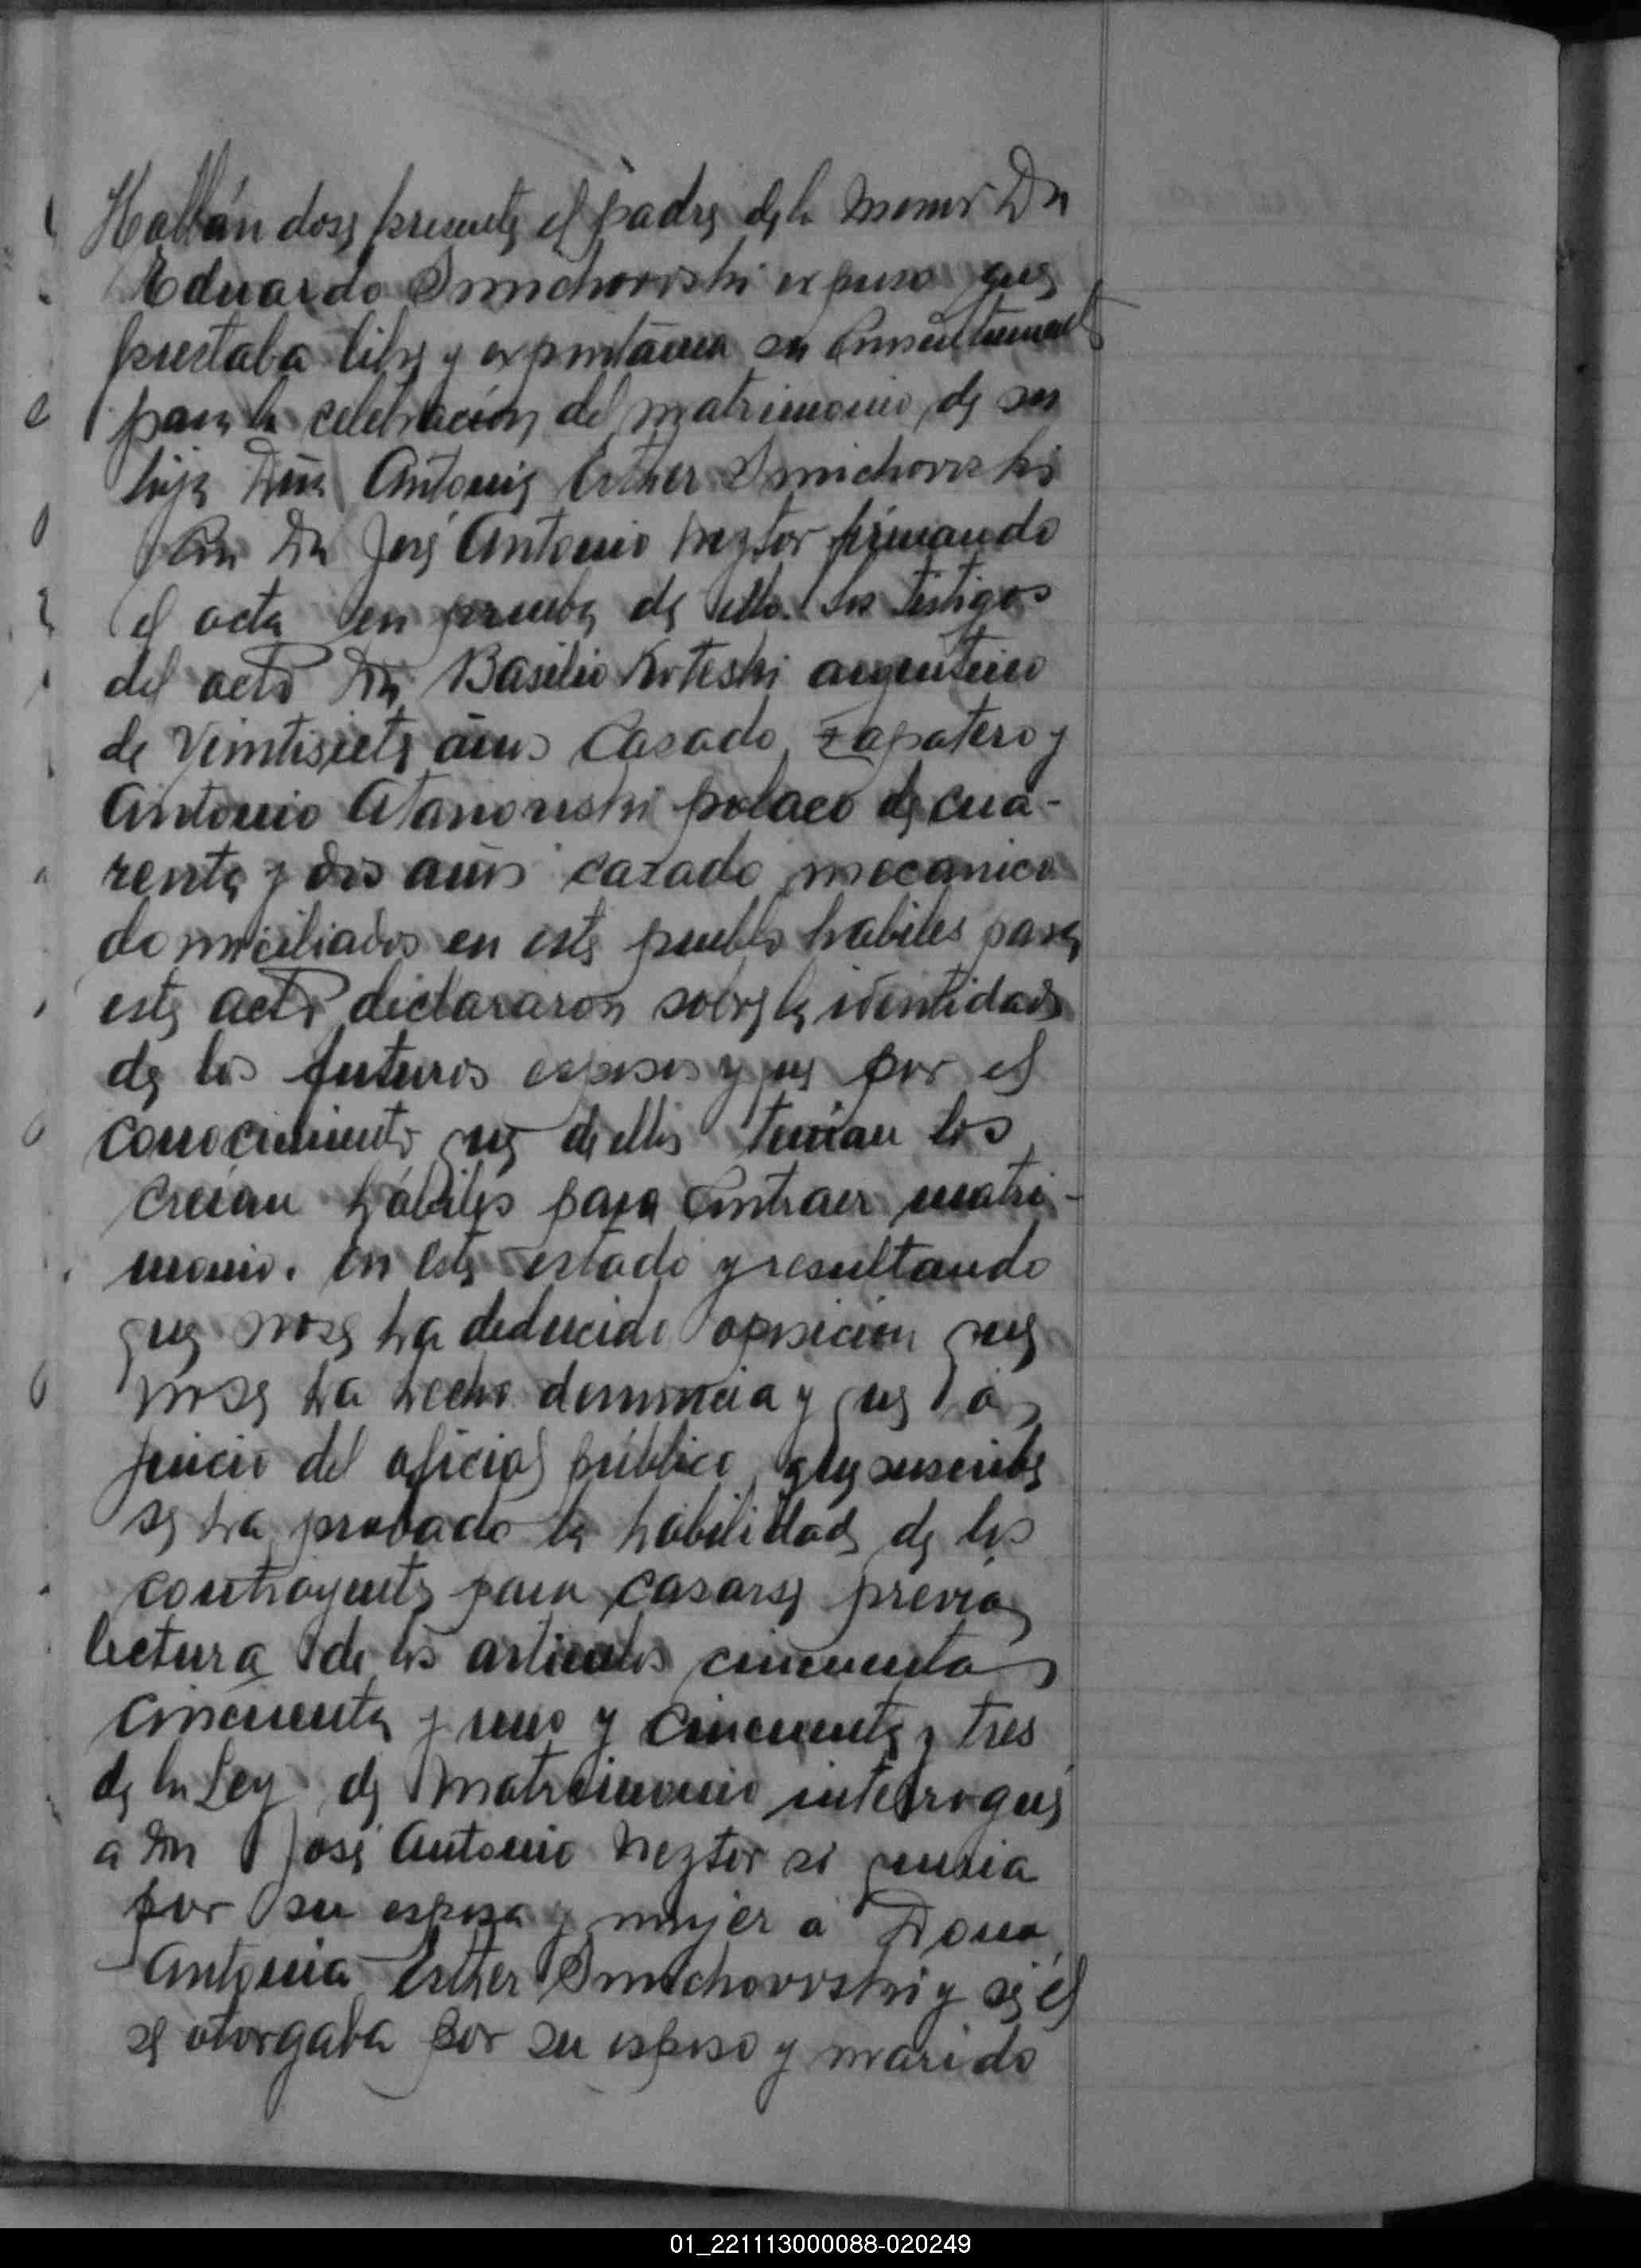 Hallándose presente el padre de la menor Dn
Eduardo Smichowski expuso que
prestaba libre y expontánea su consentimiento
para la celebración del matrimonio de su
hija Dña Antonia Esther Smichowski
con Dn José Antonio Neztor firmando
el acta en prueba de ello. Los testigos
del acto Dn Basilio Koteski argentino
de Veintisiete años casado zapatero y
Antonio Atanowski polaco de cua-
renta y dos años casado mecanico
domiciliados en este pueblo habiles para
este acto declararon sobre la identidad
de los futuros esposos y que por el
conocimiento que de ellos tenían los
creían hábiles para contraer matri-
monio. En este estado y resultando
que no se ha deducido oposición que
no se ha hecho denuncia y que a
juicio del oficial público que suscribe
se ha probado la habilidad de los
contrayentes para casarse previa
lectura de los articulos cincuenta
cincuenta y uno y cincuenta y tres
de la Ley de Matrimonio interrogué
a Dn José Antonio Neztor si queria
por su esposa y mujer a Doña
Antonia Esther Smichowski y si él
se otorgaba por su esposo y marido
01_221113000088-020249